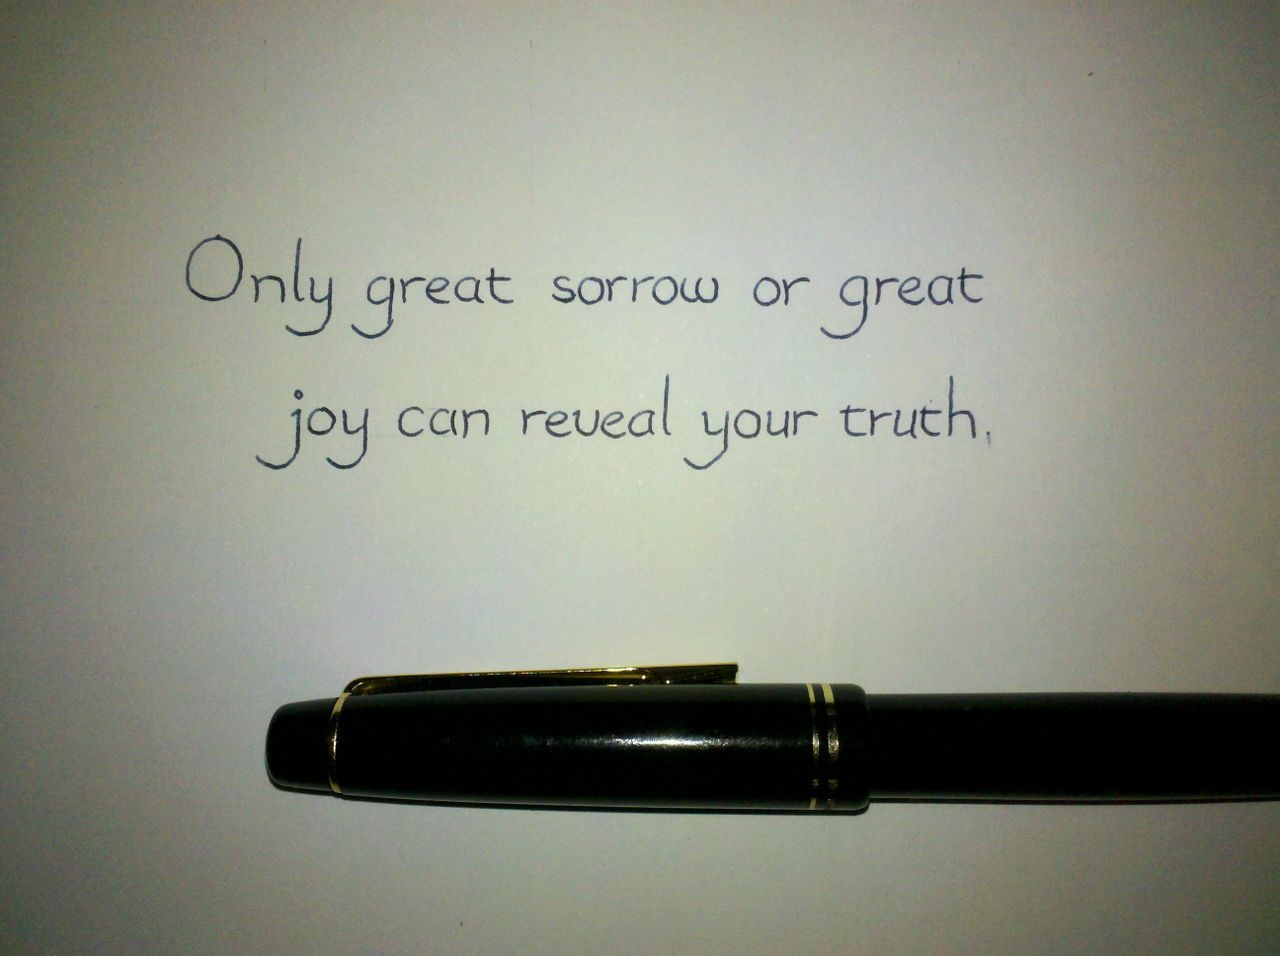 Only great sorrow or great
joy can reveal your truth.